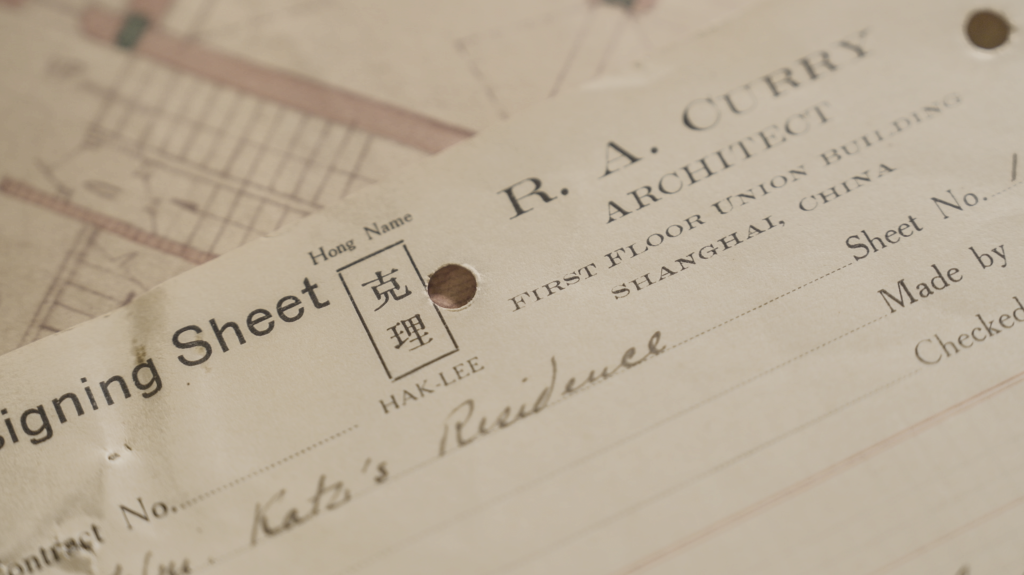 R. A. CURRY
ARCHITECT
FIRST FLOOR UNION BUILDING
SHANGHAI, CHINA
Hong Name
克理
HAK-LEE
signing Sheet
Sheet No.
Made by
Checked
ontract No.
Katz's Residence